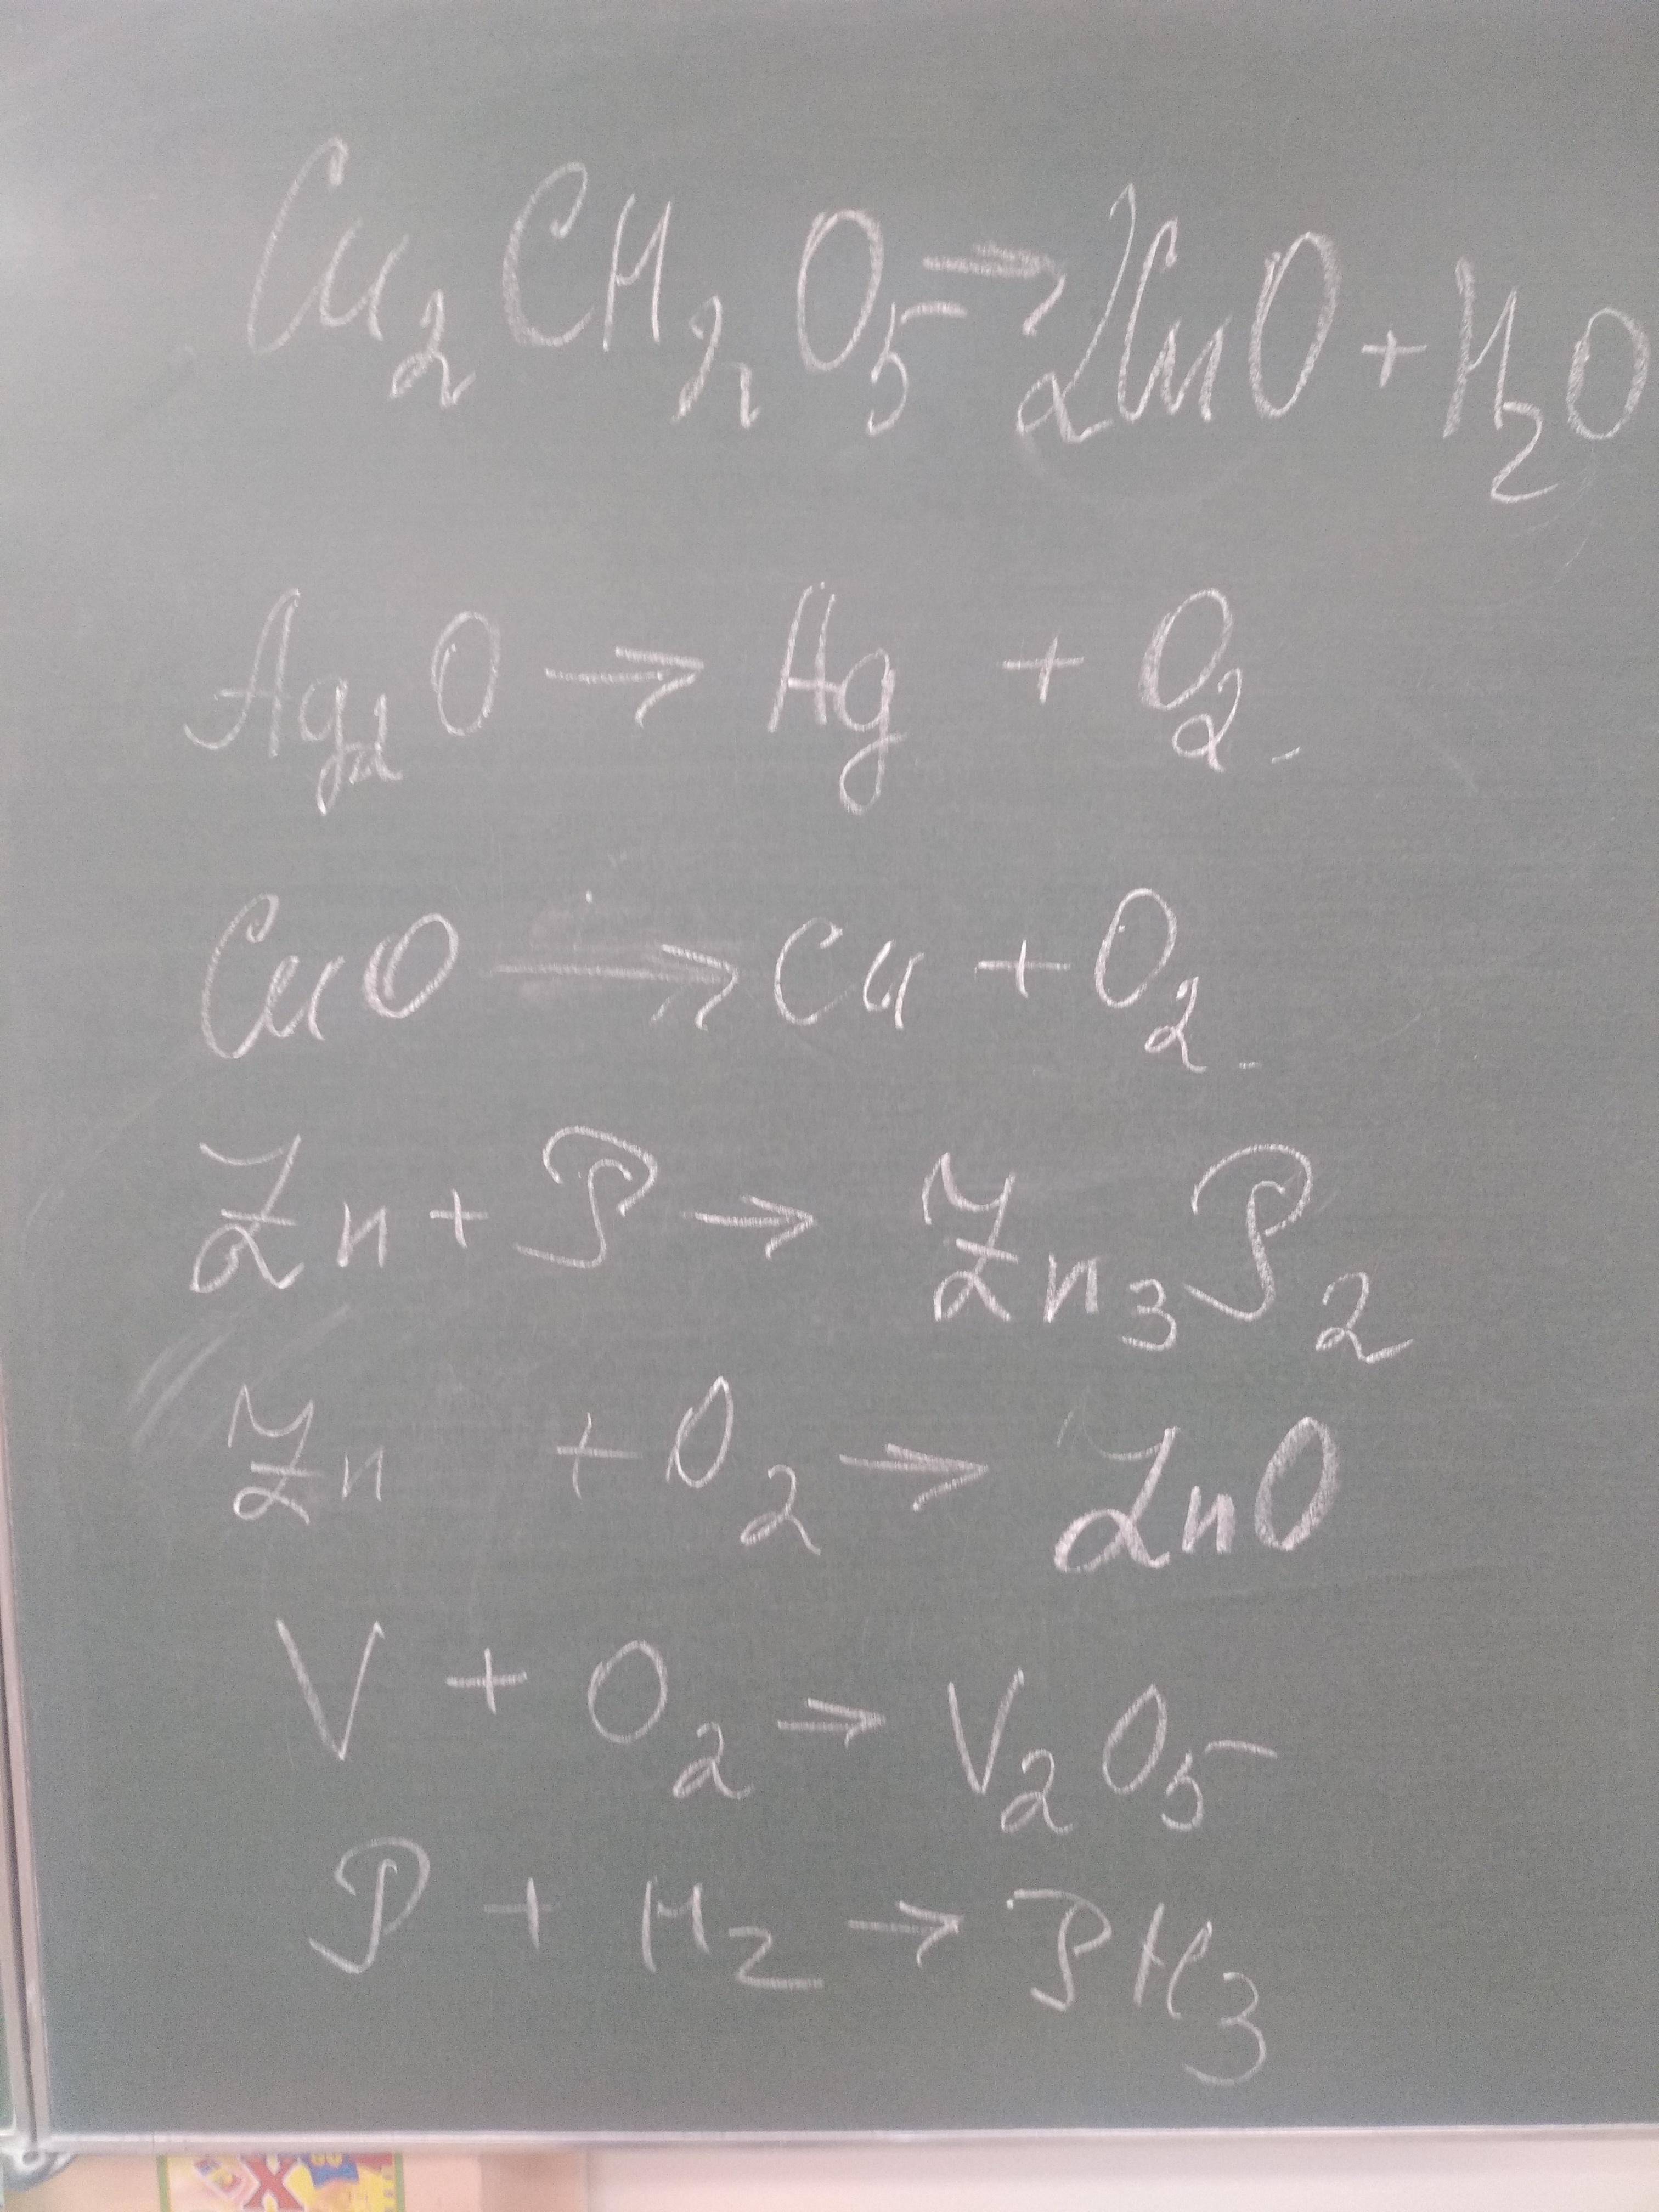 Cu₂CH₂O₅ → 2CuO + H₂O
Ag₂O → Ag + O₂.
CuO → Cu + O₂.
Zn + P → Zn₃P₂
Zn + O₂ → ZnO
V + O₂ → V₂O₅
P + H₂ → PH₃